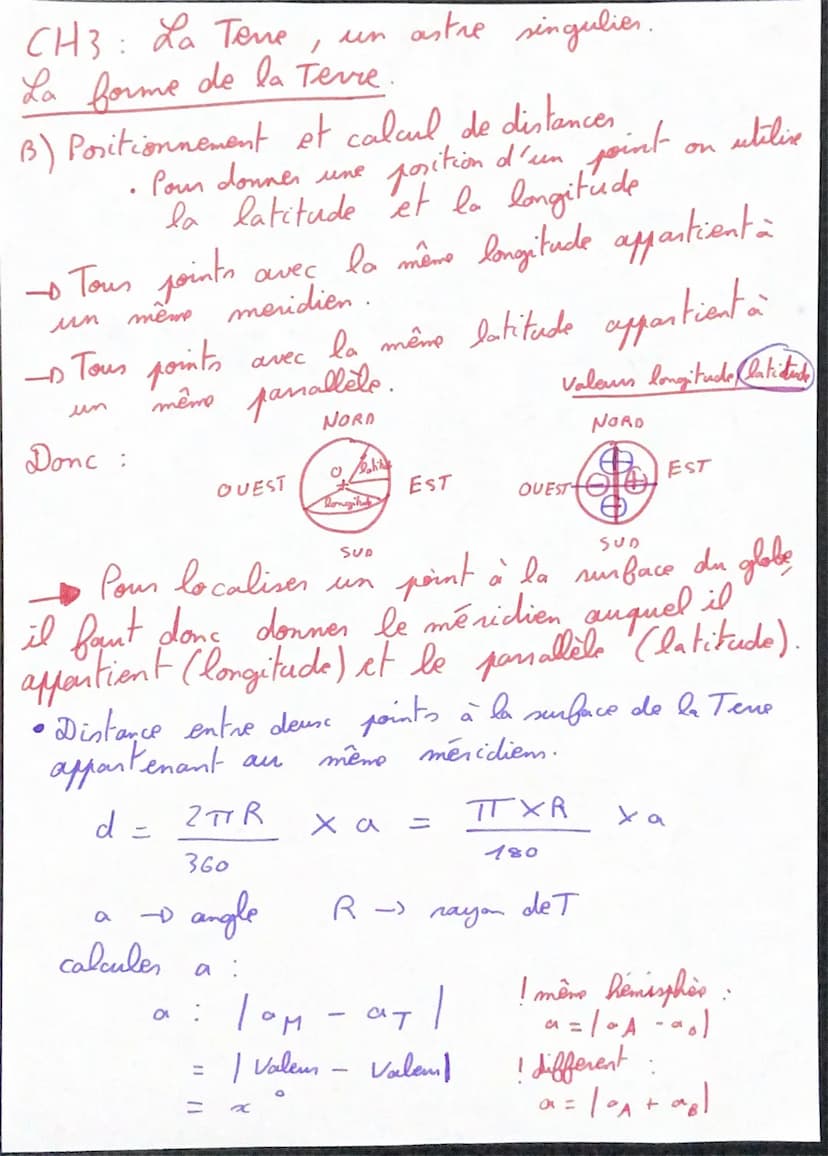 CH3 : La Terre, un astre singulier.
La forme de la Terre.
B) Positionnement et calcul de distances
• Pour donner une position d'un point on utilise
la latitude et la longitude
→ Tous points avec la même longitude appartient à
un même meridien.
→ Tous points avec la même latitude appartient à
un même parallèle.
Valeurs longitude/latitude
Donc :
NORD
OUEST
O
latitude
longitude
EST
SUD
NORD
OUEST
+
-
+
-
EST
SUD
→ Pour localiser un point à la surface du globe,
il faut donc donner le méridien auquel il
appartient (longitude) et le parallèle (latitude).
• Distance entre deux points à la surface de la Terre
appartenant au même méridiens.
d = 2πR/360 × a = π×R/180 × a
a → angle R → rayon de T
calculer a :
a : |aM - aT|
= |Valeur - Valeur|
= x°
! même hémisphère :
a = |aA - aB|
! different :
a = |aA + aB|